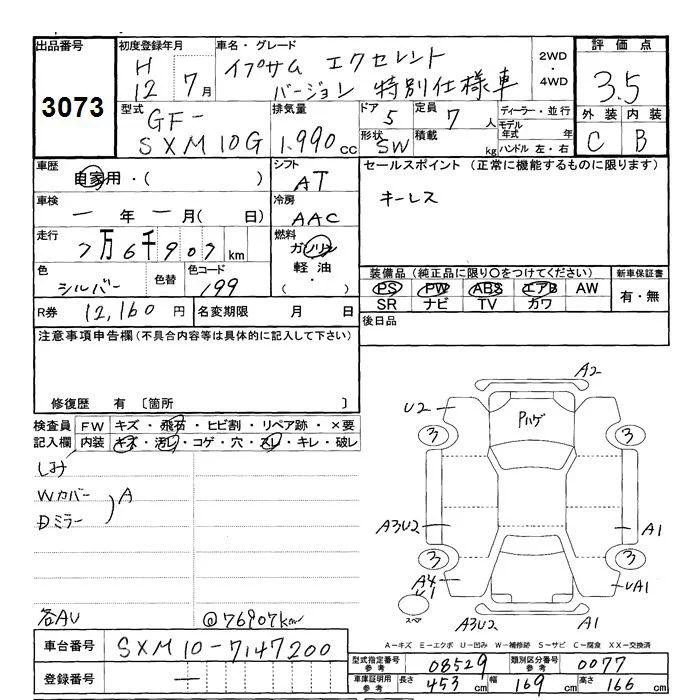 出品番号 初度登録年月 車名・グレード 2WD・4WD 評価点
3073 H12 7月 イプサム エクセレントバージョン 特別仕様車 3.5
型式 排気量 ドア 定員 ディーラー・並行 外装 内装
GF-SXM10G 1,990cc 5 7人 モデル年式 年 C B
形状 SW 積載 kg ハンドル 左・右
車歴 自家用・( ) シフト AT セールスポイント (正常に機能するものに限ります)
車検 一年 一月( 日) 冷房 AAC キーレス
走行 7万6千907km 燃料 ガソリン・軽油・( )
色 シルバー 色替 色コード 199
装備品 (純正品に限り○をつけてください) 新車保証書
PS PW ABS エアB AW 有・無
SR ナビ TV カワ
R券 12,160円 名変期限 月 日 後日品
注意事項申告欄 (不具合内容等は具体的に記入して下さい)
修復歴 有 〔箇所 〕
検査員 FW キズ・飛石・ヒビ割・リペア跡・×要
記入欄 内装 キズ・汚レ・コゲ・穴・スレ・キレ・破レ
しみ
Wカバー
Dミラー
A
各AU @76907km
A2
U2 Pハゲ
3 3
A3U2 A1
3 3
A4 UA1
U1
スペア
A3U2 A1
A-キズ E-エクボ U-凹み W-補修跡 S-サビ C-腐食 XX-交換済
車台番号 SXM10-7147200
登録番号 ー
型式指定番号 参考 08529 類別区分番号 参考 0077
車庫証明用 参考 長さ 453cm 幅 169cm 高さ 166cm